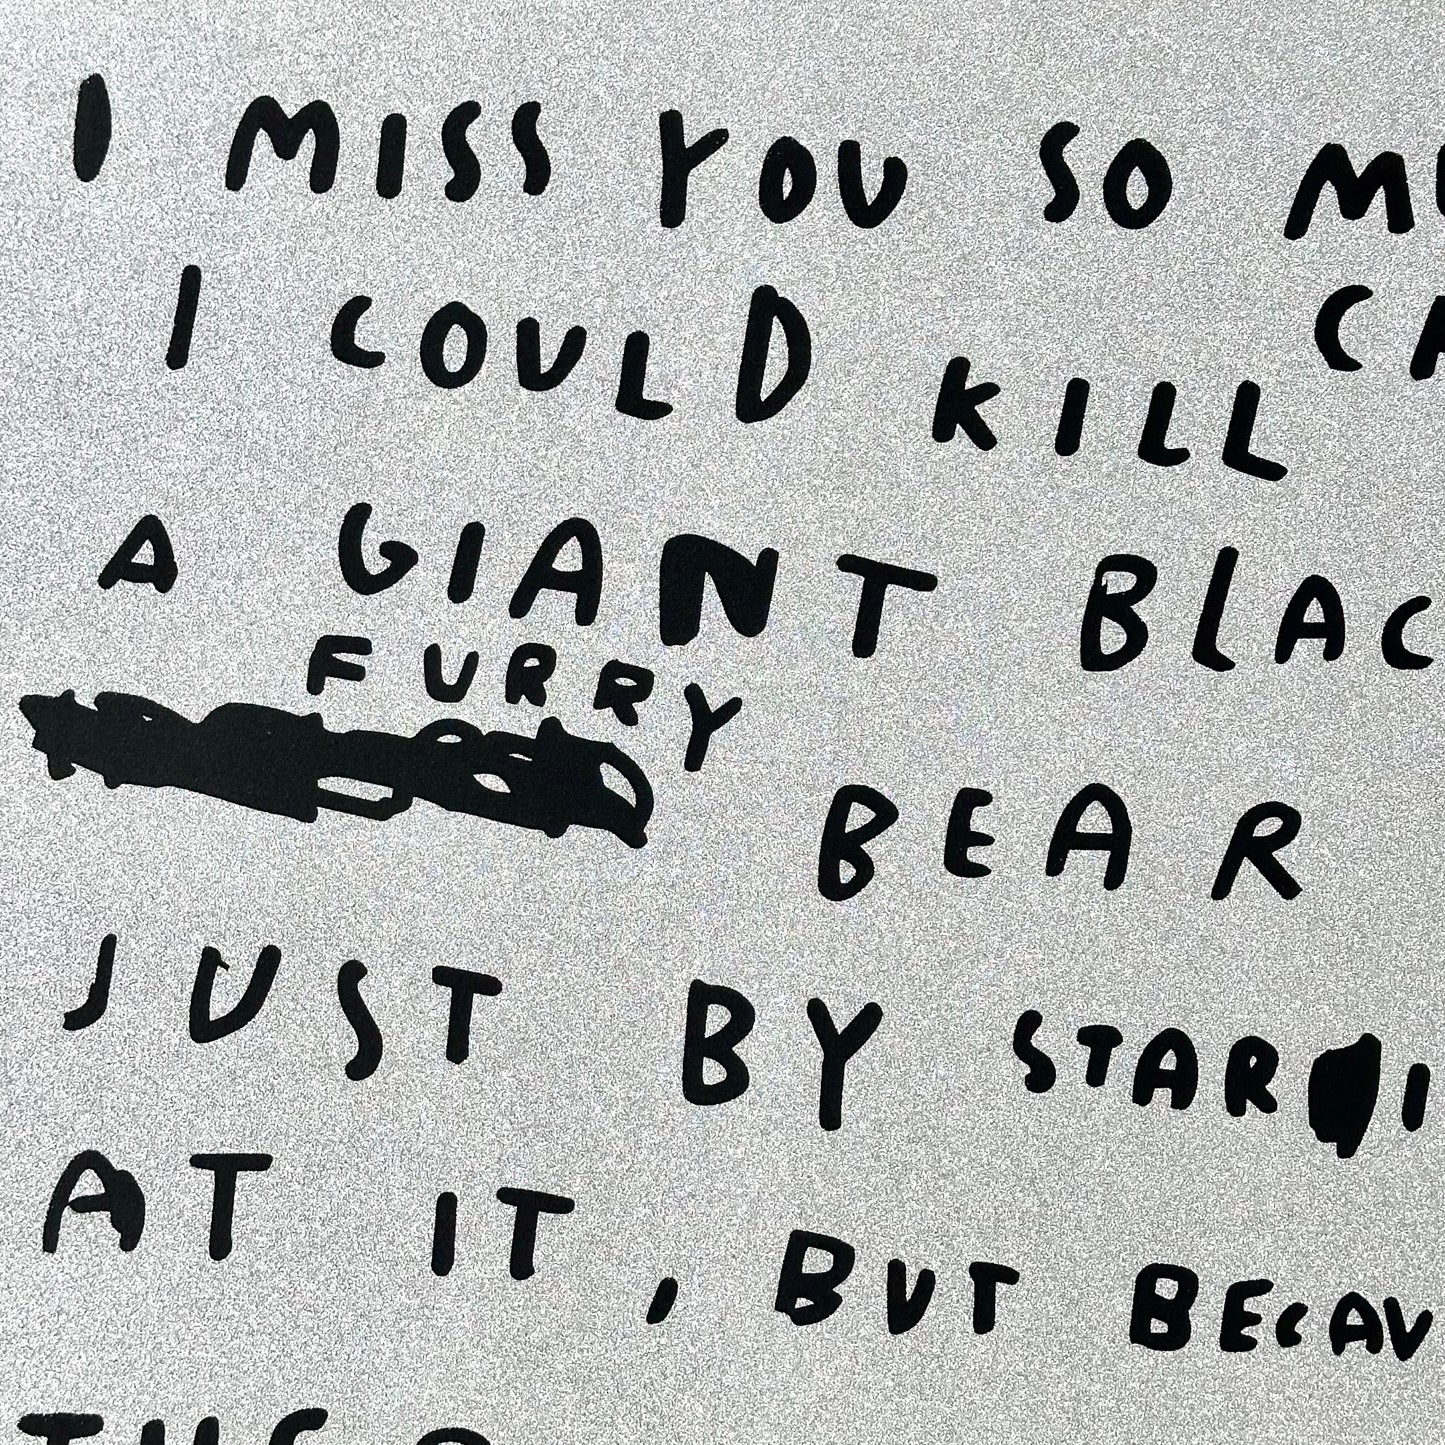 I MISS YOU SO MU
I COULD KILL CA
A GIANT BLAC
FURRY
BEAR
JUST BY STAR I
AT IT, BUT BECAU